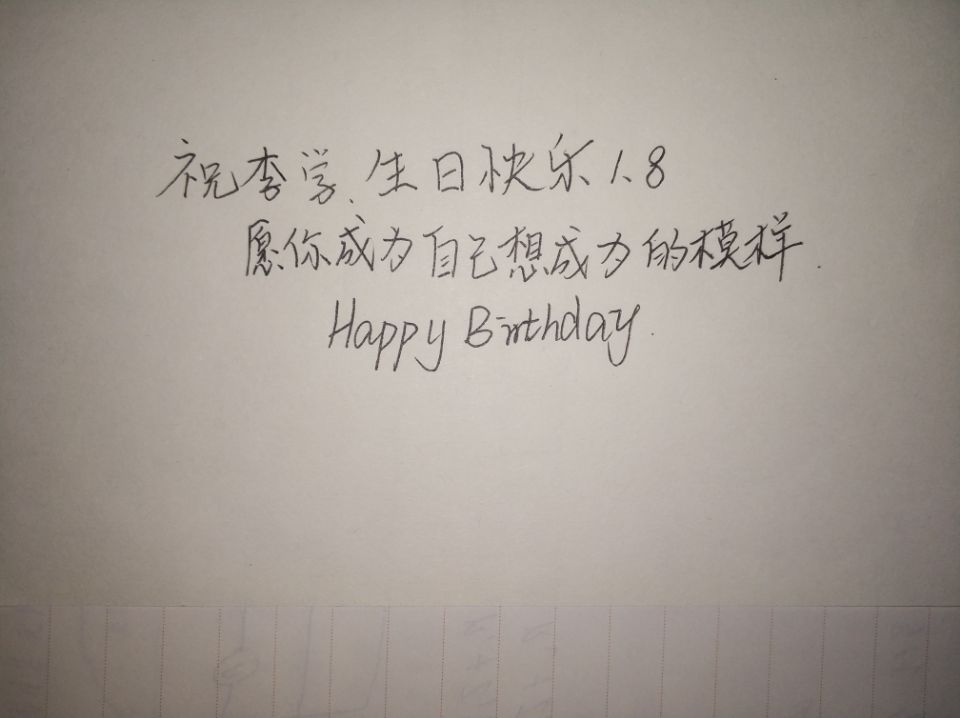 祝李学.生日快乐1.8
愿你成为自己想成为的模样.
Happy Birthday.